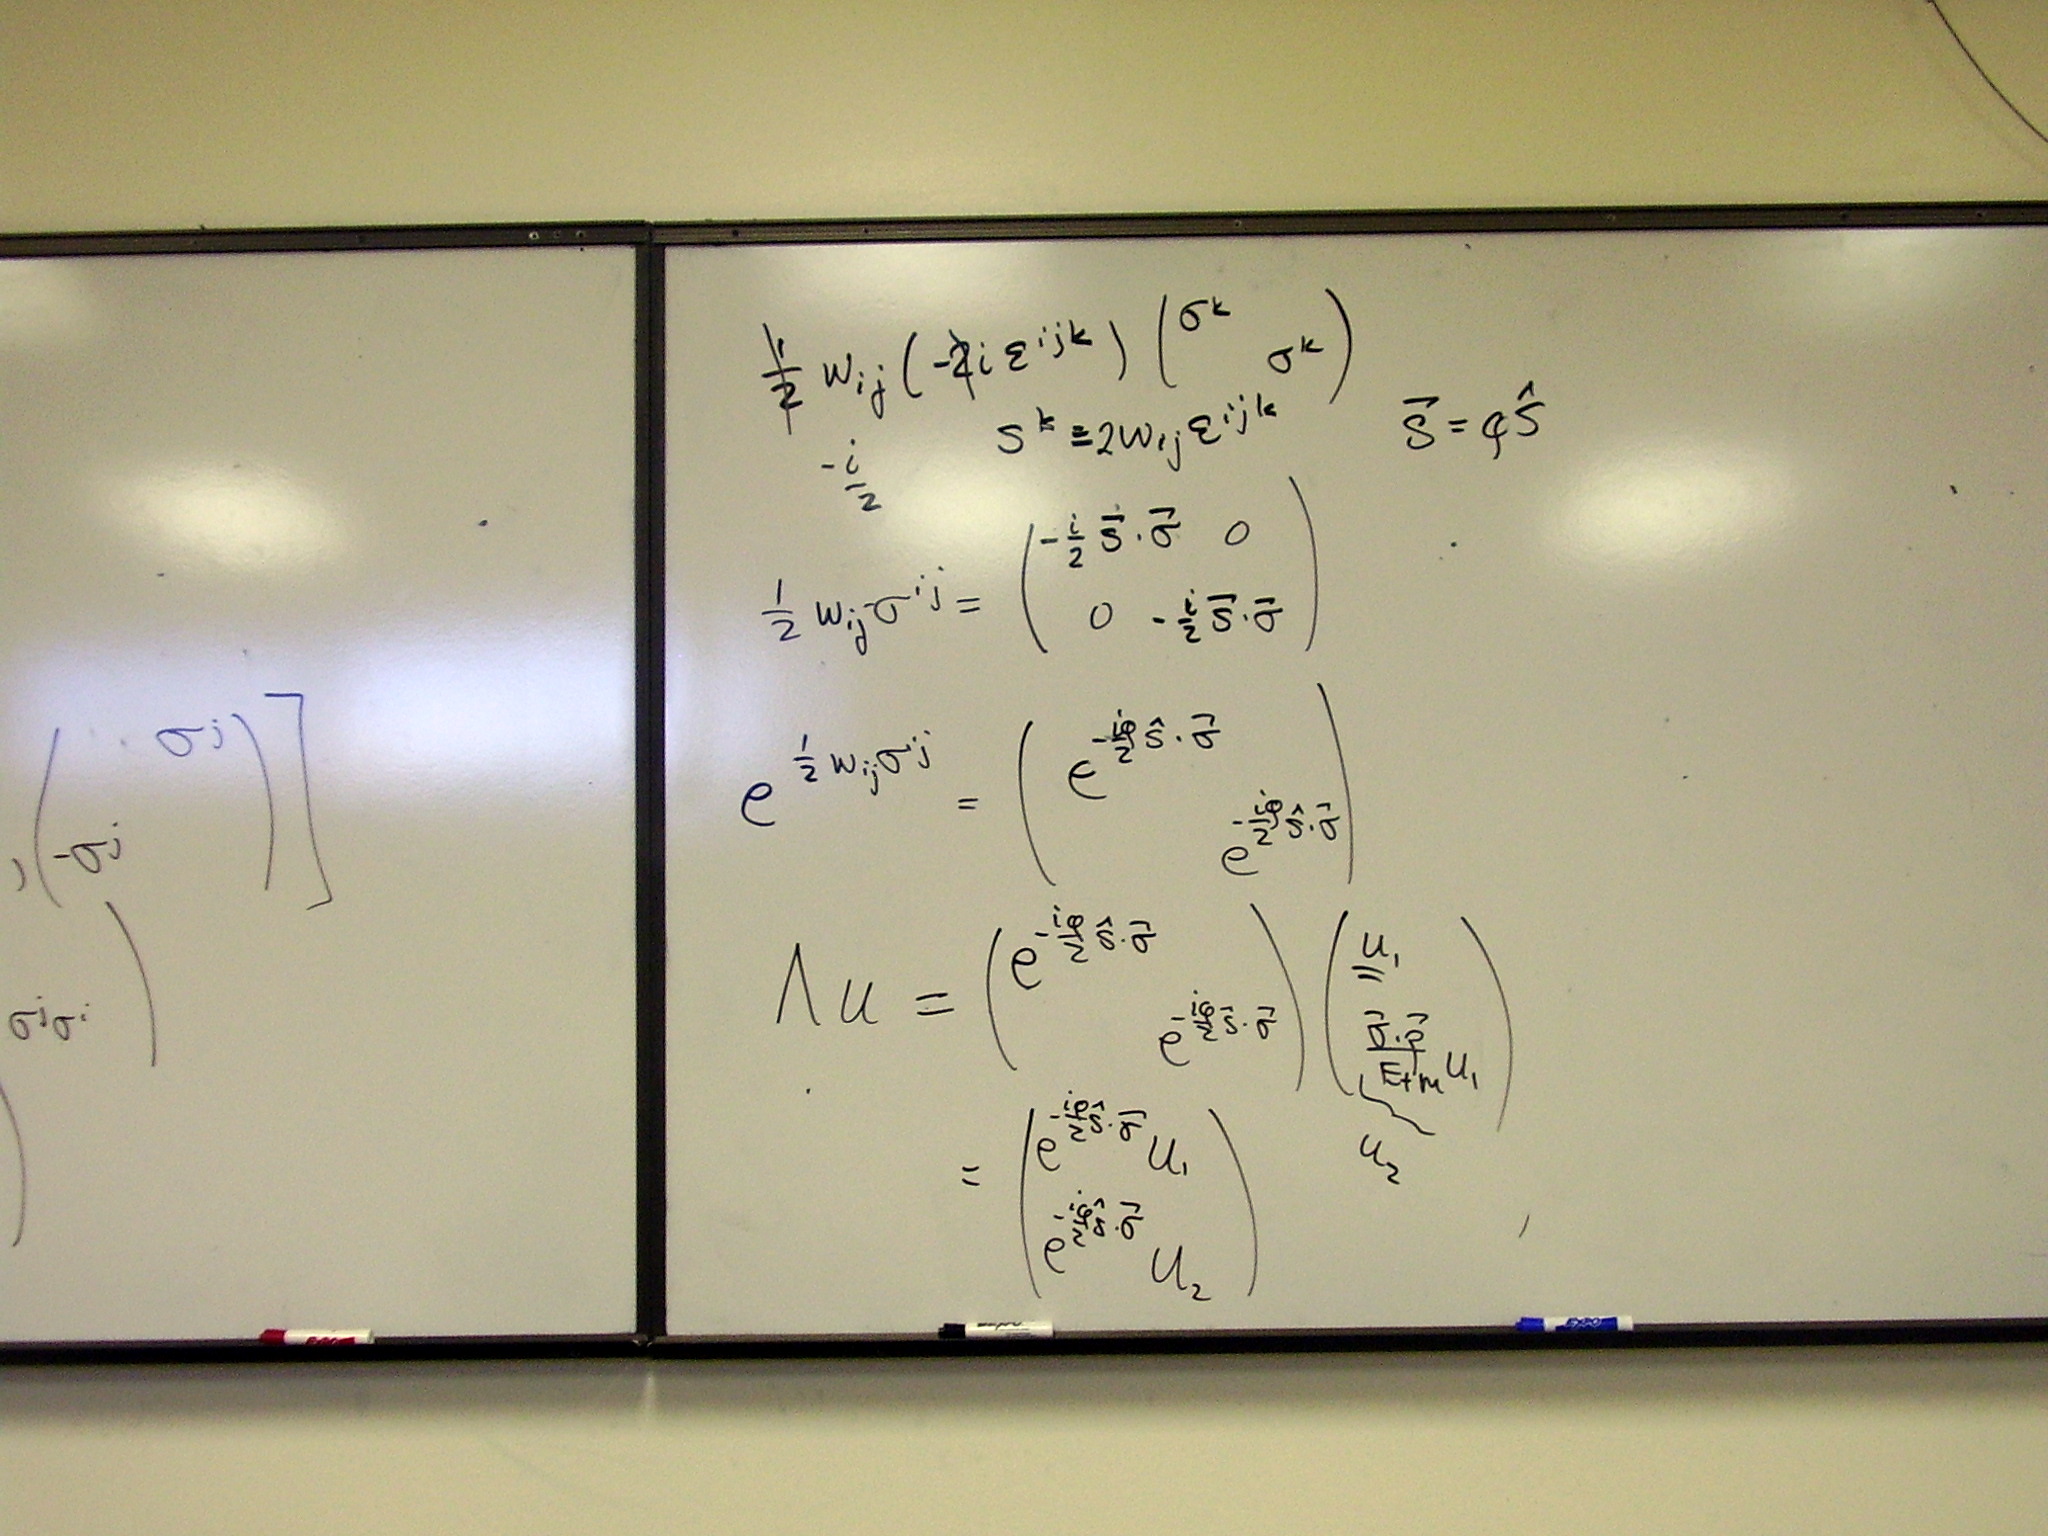 , ( σ^j -σ^j ) ]
σ^jσ^i )
)
1/2 w_ij (-2i ε^ijk) ( σ^k σ^k )
s^k ≡ 2w_ij ε^ijk
s⃗ = φŝ
-i/2
1/2 w_ij σ^ij = ( -i/2 s⃗·σ⃗ 0
0 -i/2 s⃗·σ⃗ )
e^(1/2 w_ij σ^ij) = ( e^(-iφ/2 ŝ·σ⃗)
e^(-iφ/2 ŝ·σ⃗) )
Λu = ( e^(-iφ/2 ŝ·σ⃗) e^(-iφ/2 ŝ·σ⃗) ) ( u_1 σ⃗·p⃗/E+m u_1 )
u_2
= ( e^(-iφ/2 ŝ·σ⃗) u_1
e^(-iφ/2 ŝ·σ⃗) u_2 )
EXPO
EXPO
EXPO